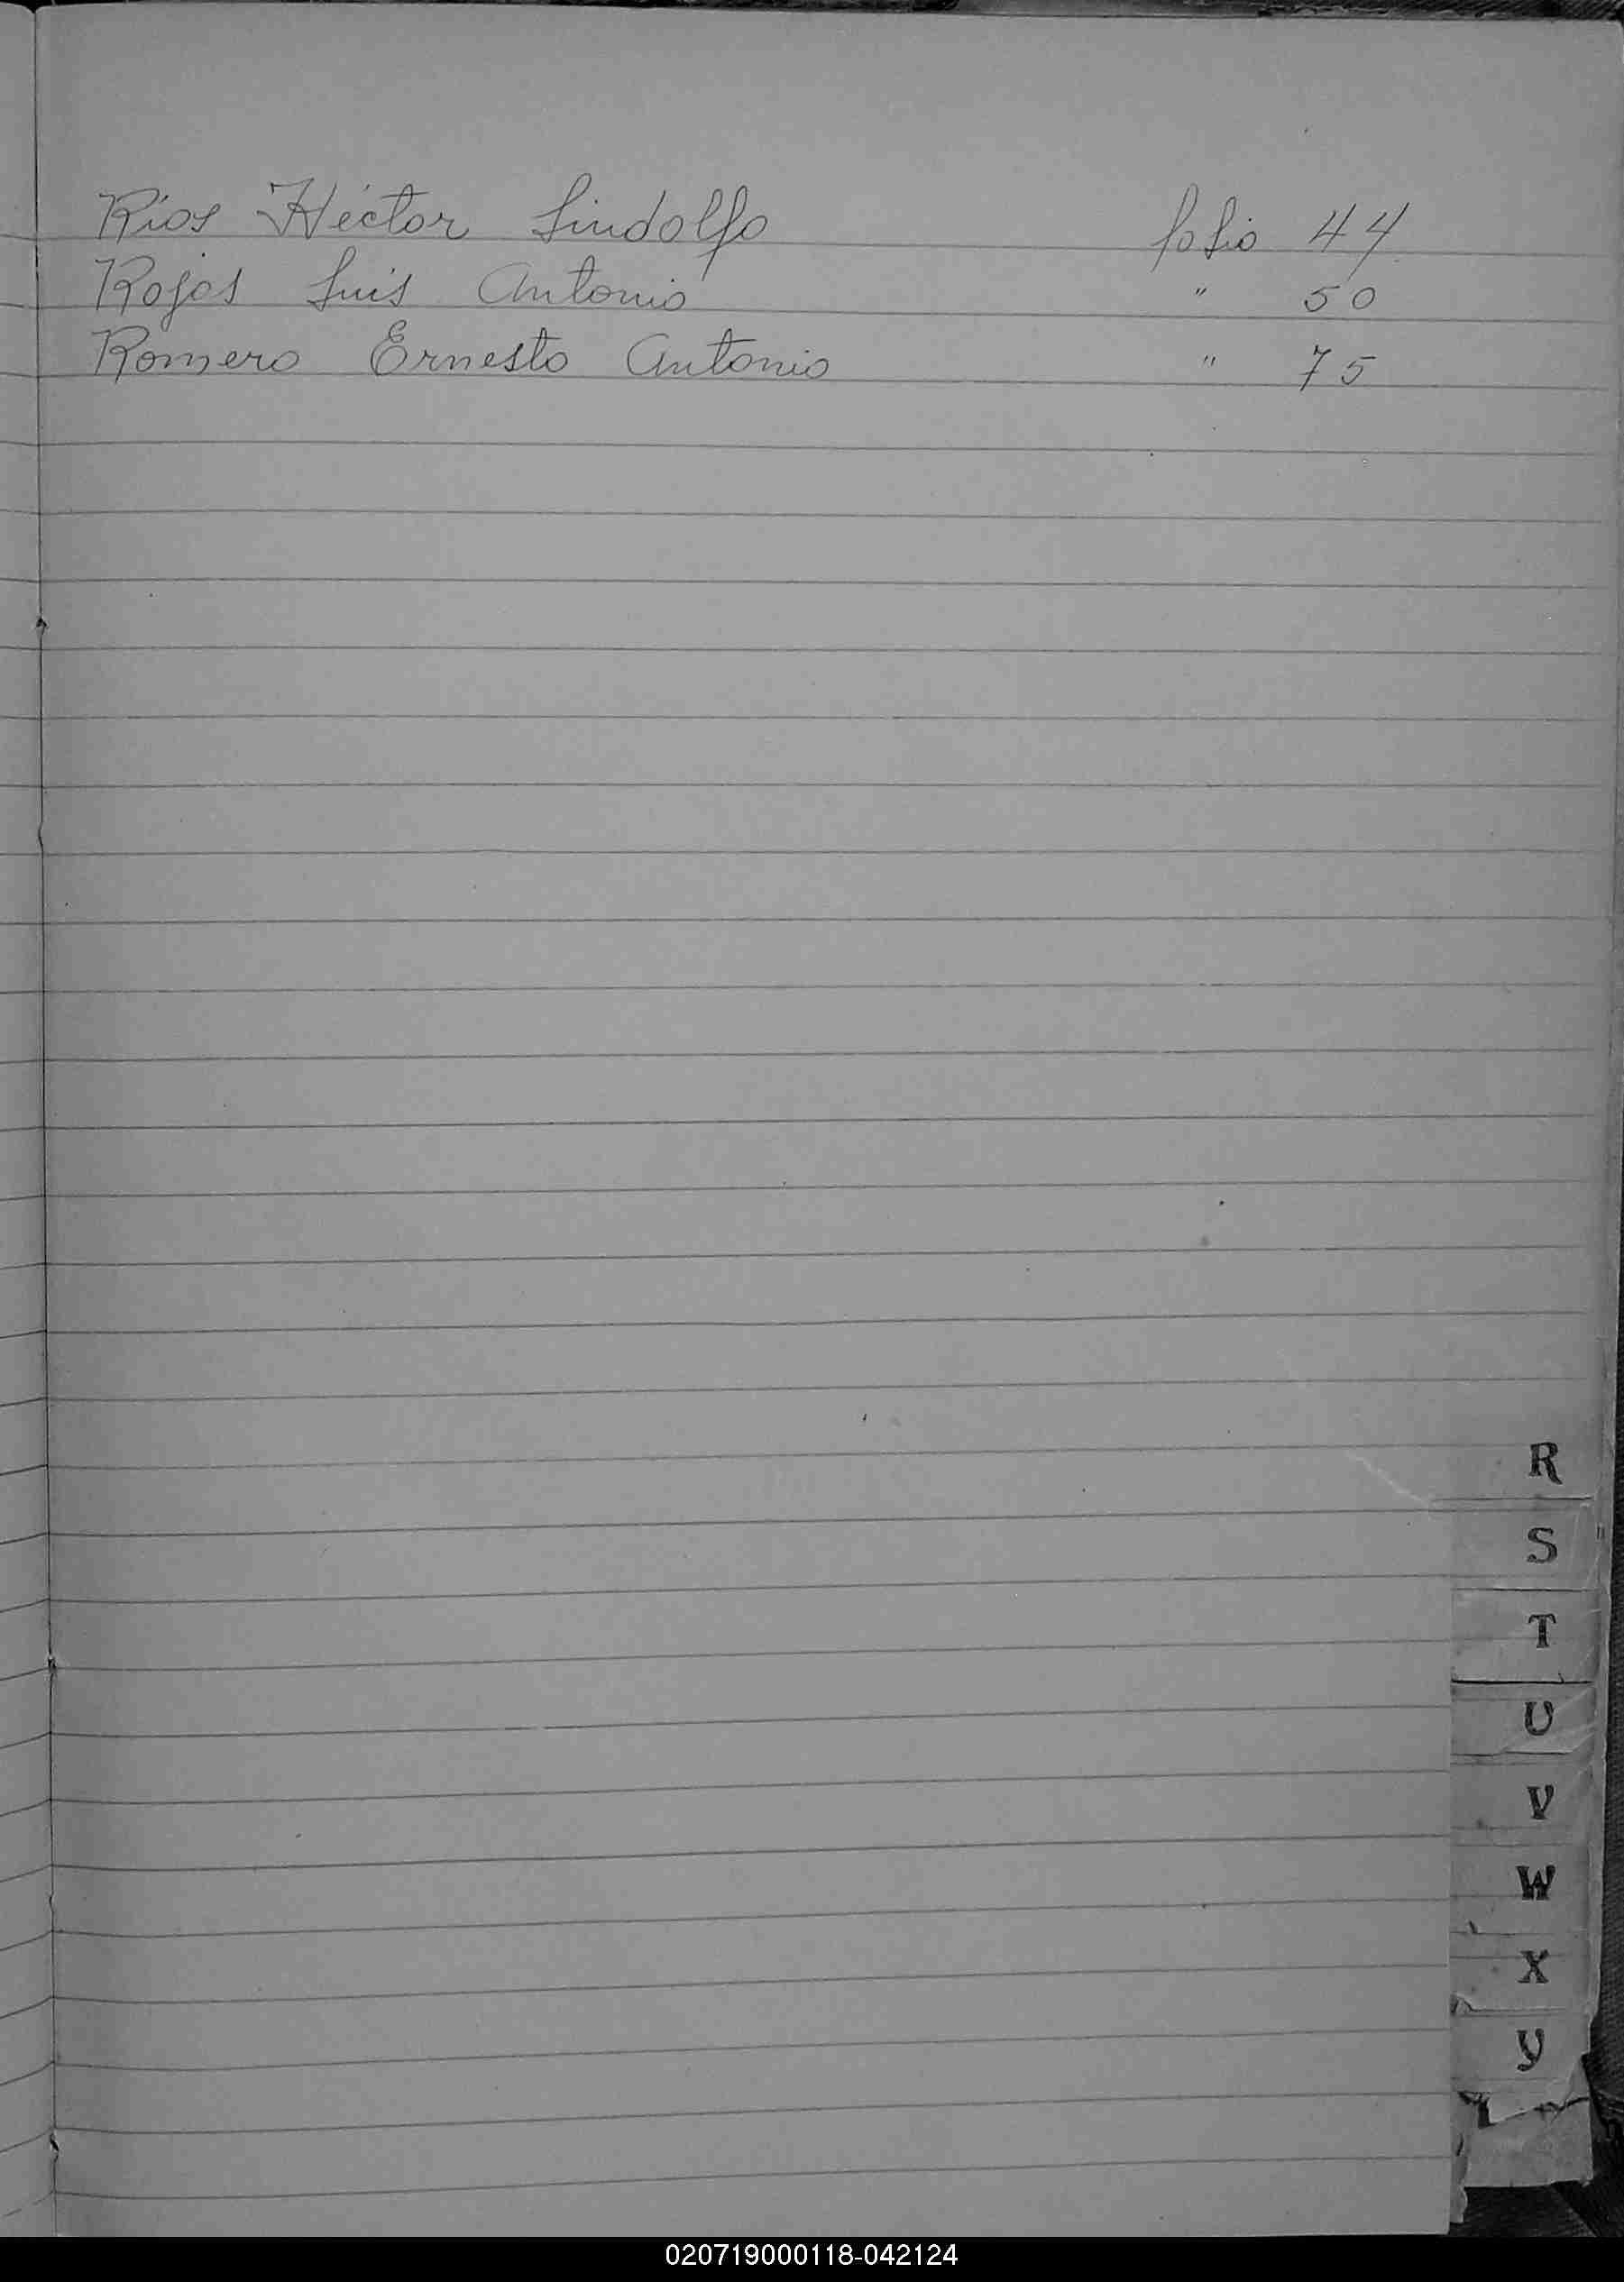 Ríos Héctor Lindolfo folio 44
Rojas Luis Antonio " 50
Romero Ernesto Antonio " 75
R
S
T
U
V
W
X
Y
020719000118-042124